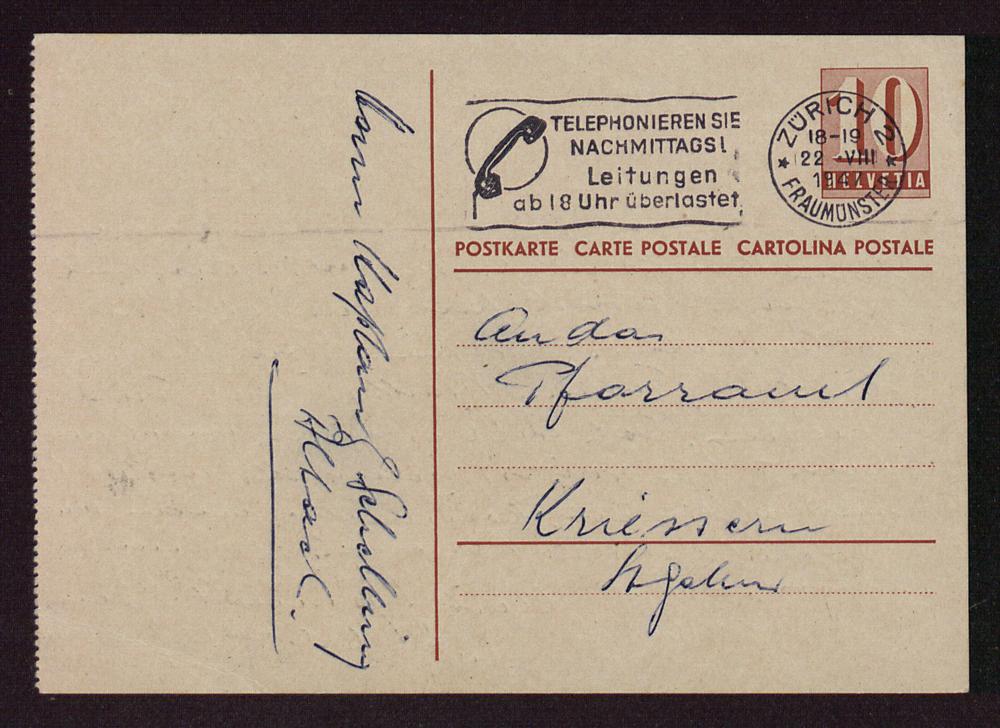 TELEPHONIEREN SIE
NACHMITTAGS!
Leitungen
ab 18 Uhr überlastet
10
HELVETIA
ZÜRICH 2
18-19
22 VIII
1947
FRAUMÜNSTER
POSTKARTE CARTE POSTALE CARTOLINA POSTALE
An das
Pfarramt
Kriessern
St Gallen
Kaplan Schelling